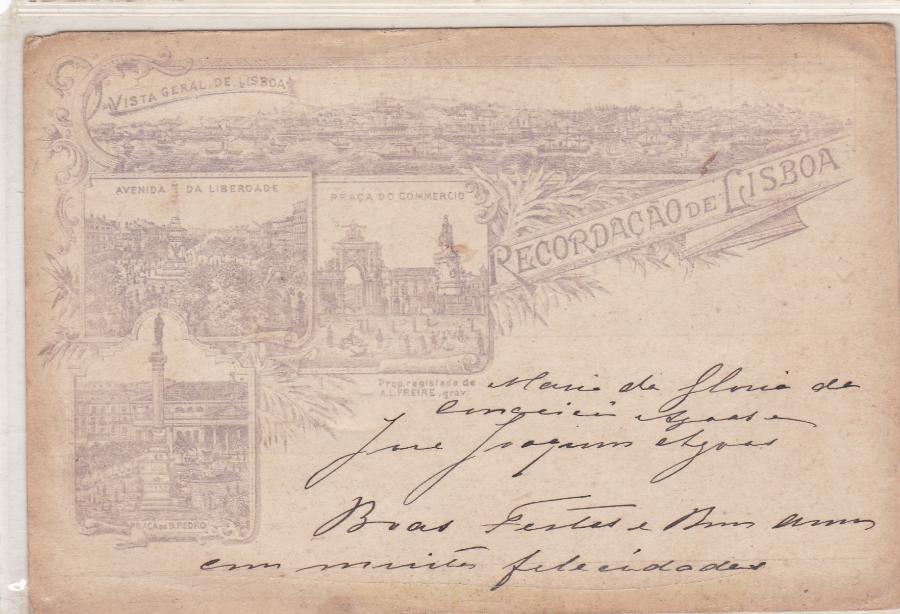 VISTA GERAL DE LISBOA
AVENIDA DA LIBERDADE
PRAÇA DO COMMERCIO
RECORDAÇÃO DE LISBOA
Prop. registada de
A.L. FREIRE, grav.
PRAÇA DE D. PEDRO
Maria da Gloria da
Conceição e
José Joaquim
Boas Festas e Bom anno
com muitas felicidades